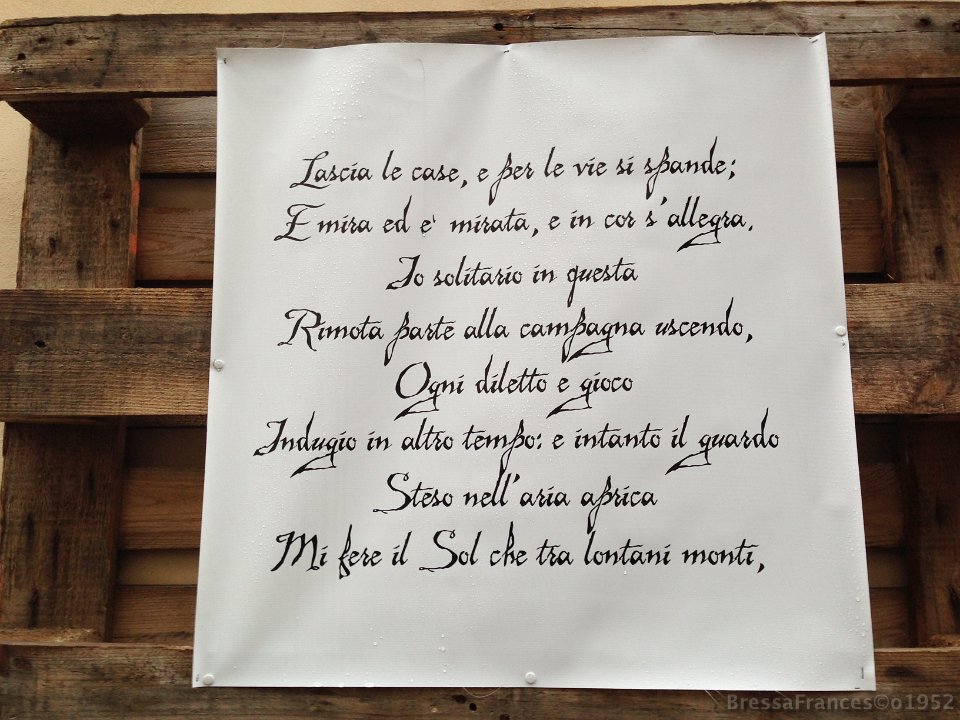 Lascia le case, e per le vie si spande;
E mira ed e' mirata, e in cor s'allegra.
Io solitario in questa
Rimota parte alla campagna uscendo,
Ogni diletto e gioco
Indugio in altro tempo: e intanto il guardo
Steso nell'aria aprica
Mi fere il Sol che tra lontani monti,
BressaFrances©o1952